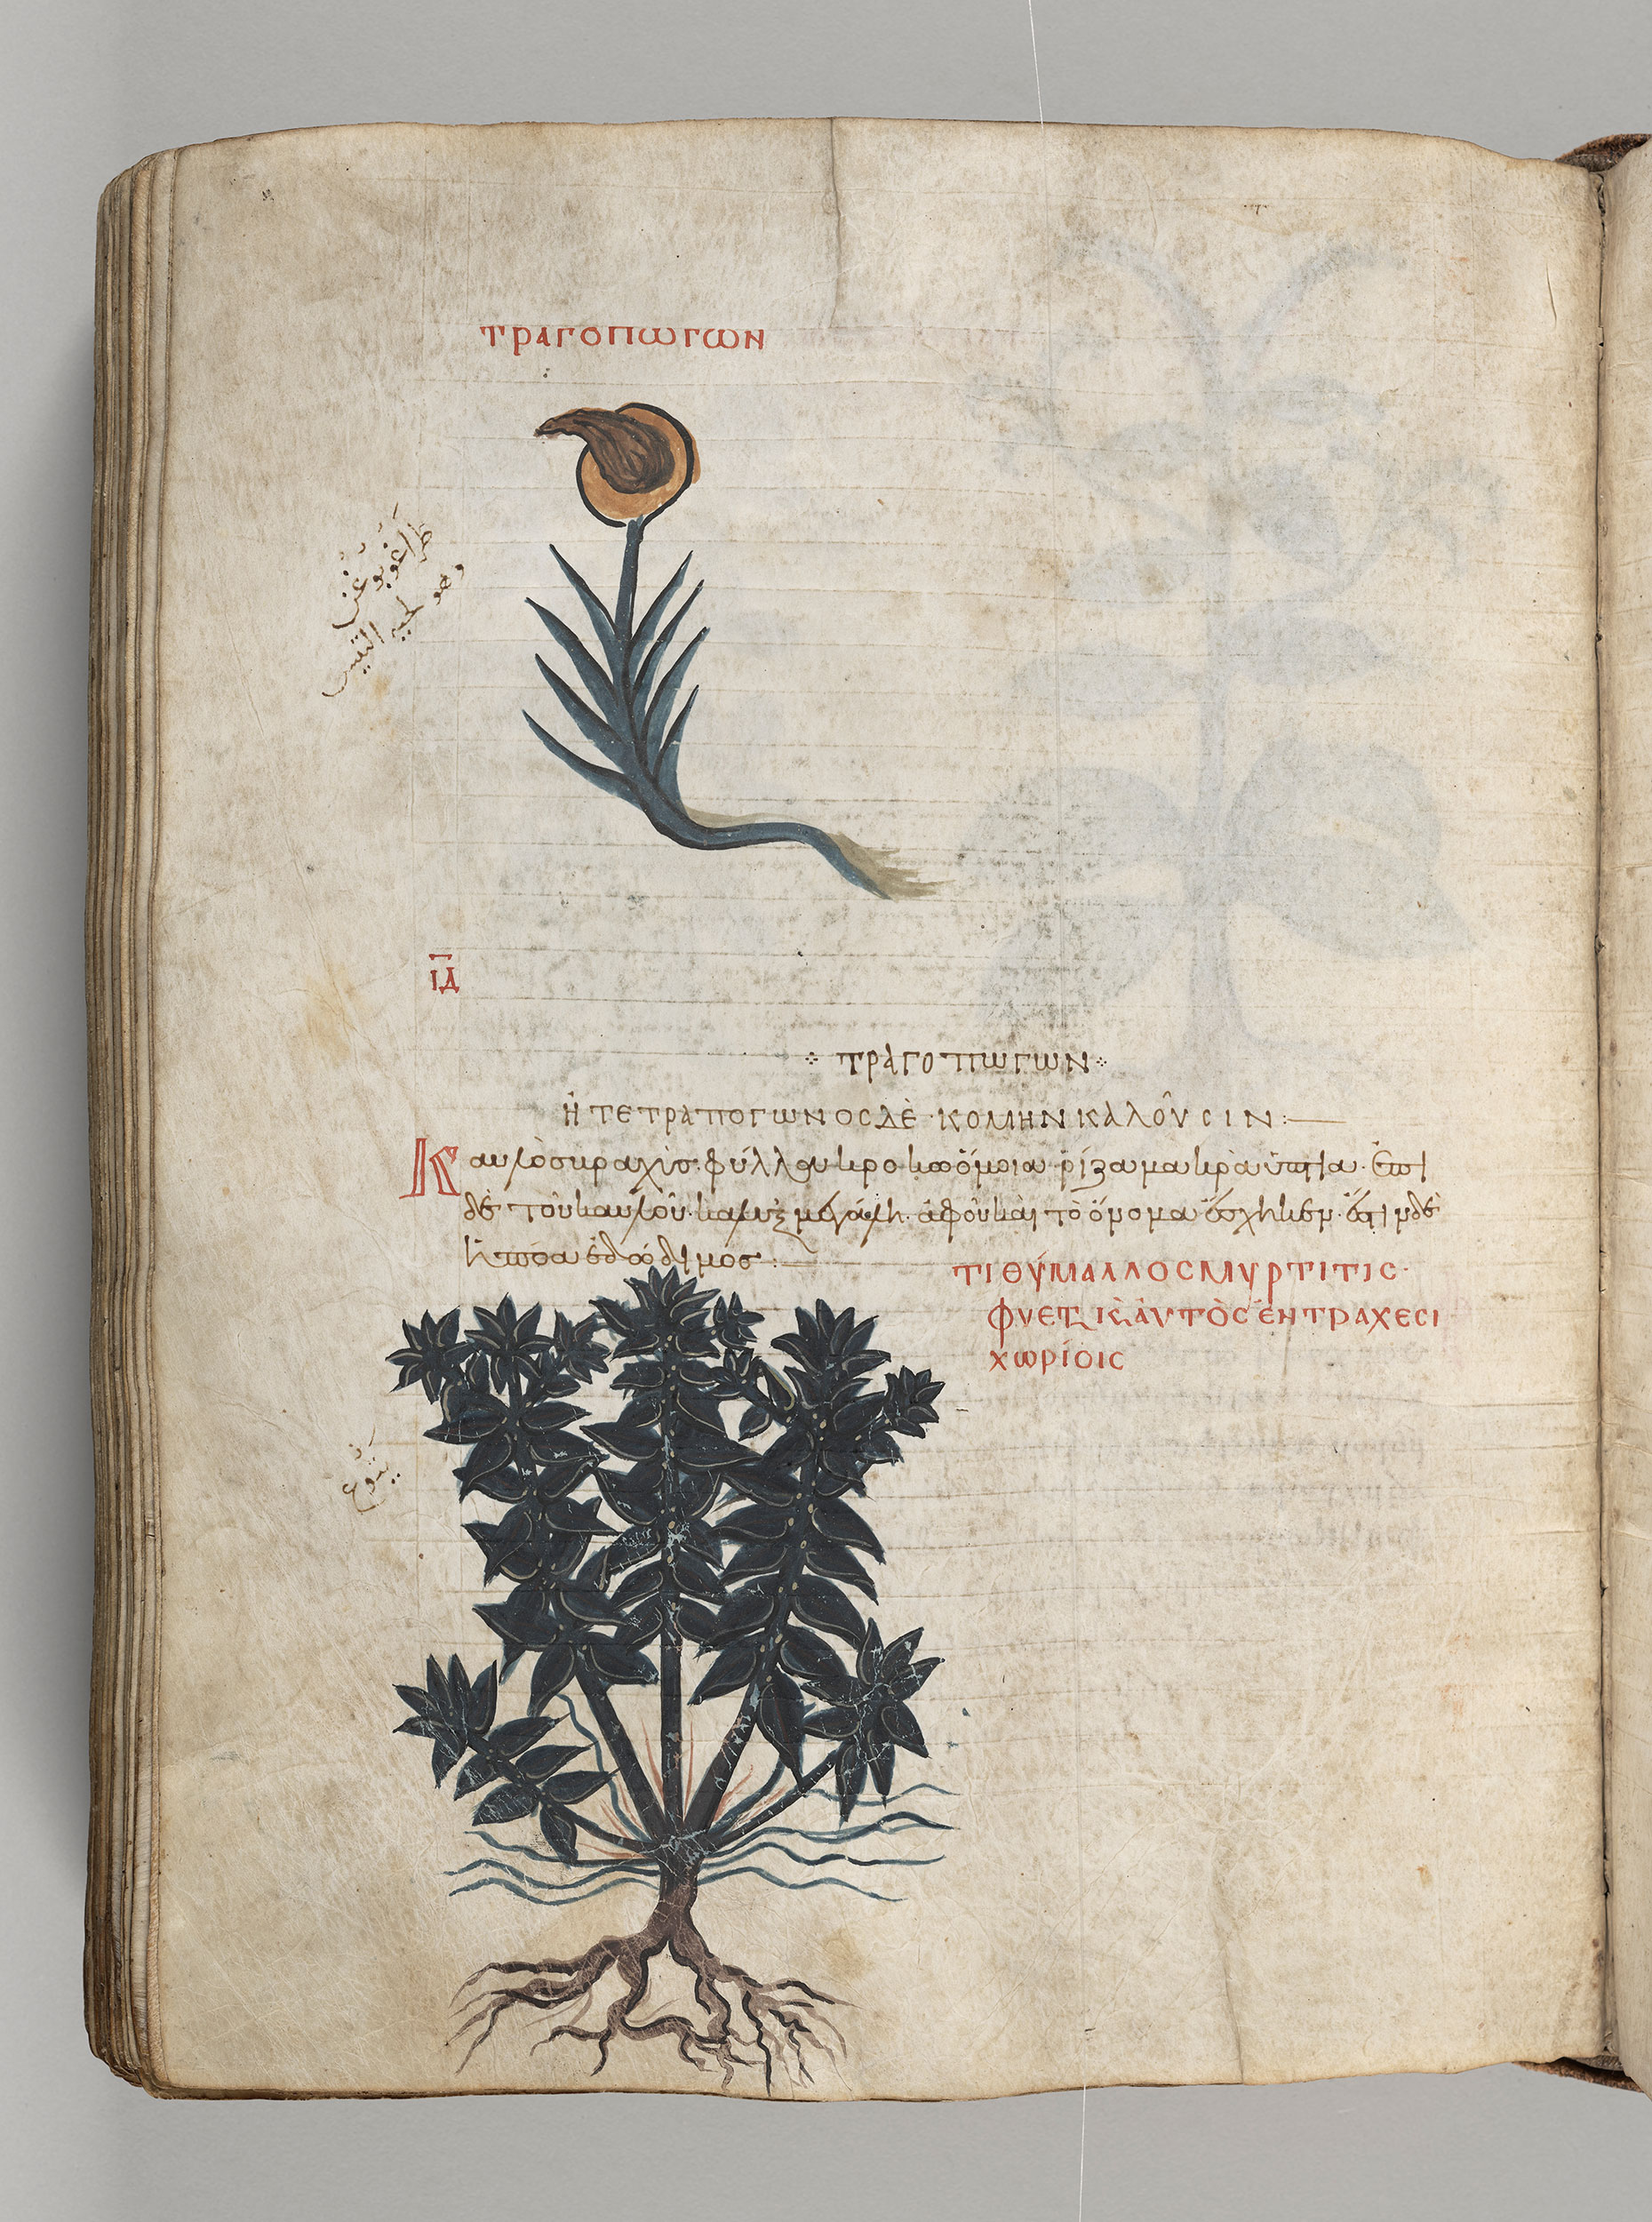 ΤΡΑΓΟΠΩΓΩΝ
طراغوبوغن
وهو لحية التيس
ΙΔ
ΤΡΑΓΟΠΩΓΩΝ
Ἠ ΤΕΤΡΑΠΟΓΩΝ ΟΣ ΔΕ ΚΟΜΗΝ ΚΑΛΟΥΣΙΝ:
Καυλὸς βραχὺς φύλλον κρόκω ὅμοια ῥίζα μακρὰ ὑπ Ἐπὶ
δὲ τοῦ καυλοῦ κάλυξ μεγάλη ἀφ οὗ καὶ τὸ ὄνομα ἔσχηκεν ἔστιν δὲ
ἡ πόα ἐδώδιμος:
ΤΙΘΥΜΑΛΛΟΣ ΜΥΡΤΙΤΙΣ
ΦΥΕΤ Κ ΑΥΤΟΣ ΕΝ ΤΡΑΧΕΣΙ
ΧΩΡΙΟΙΣ
يتوع